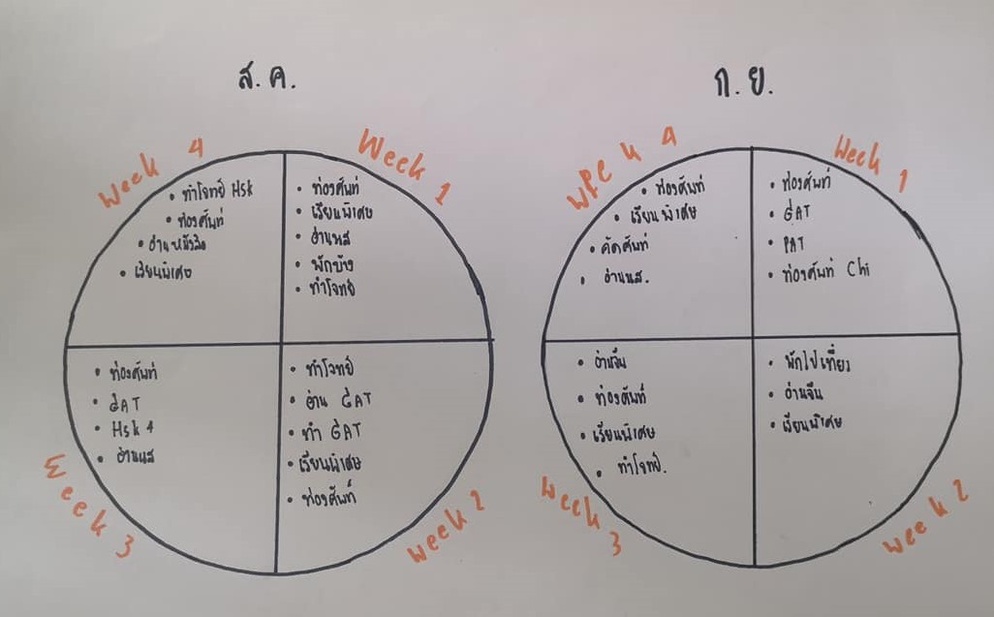 ส.ค.
Week 1
• ท่องศัพท์
• เรียนพิเศษ
• อ่านนส
• พักบ้าง
• ทำโจทย์
week 2
• ทำโจทย์
• อ่าน GAT
• ทำ GAT
• เรียนพิเศษ
• ท่องศัพท์
Week 3
• ท่องศัพท์
• GAT
• Hsk 4
• อ่านนส
Week 4
• ทำโจทย์ Hsk
• ท่องศัพท์
• อ่านหนังสือ
• เรียนพิเศษ
ก.ย.
Week 1
• ท่องศัพท์
• GAT
• PAT
• ท่องศัพท์ Chi
week 2
• พักไปเที่ยว
• อ่านจีน
• เรียนพิเศษ
week 3
• อ่านจีน
• ท่องศัพท์
• เรียนพิเศษ
• ทำโจทย์.
week 4
• ท่องศัพท์
• เรียนพิเศษ
• คัดศัพท์
• อ่านนส.